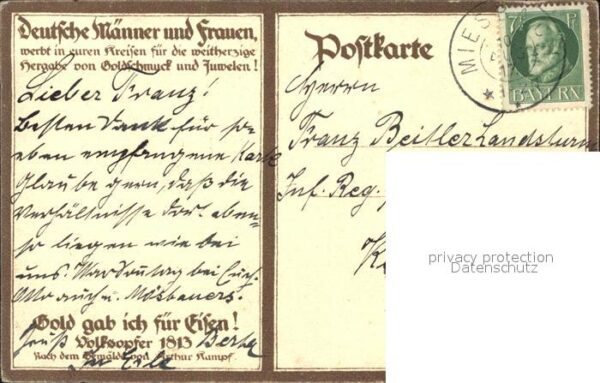 Deutsche Männer und Frauen,
werbt in euren Kreisen für die weitherzige
Hergabe von Goldschmuck und Juwelen!
Lieber Franz!
Besten Dank für so
eben empfangene Karte
Glaube gern, daß die
Verhältnisse dort eben-
so liegen wie bei
uns. War Sonntag bei Euch.
Otto auch u. Mosbauers.
Gold gab ich für Eisen!
Volksopfer 1813
Nach dem Gemälde von Arthur Kampf.
Gruß Berta
In Eile
Postkarte
Herrn
Franz Beitler Landsturm
Inf. Reg.
MIES
7½ P
BAYERN
privacy protection
Datenschutz